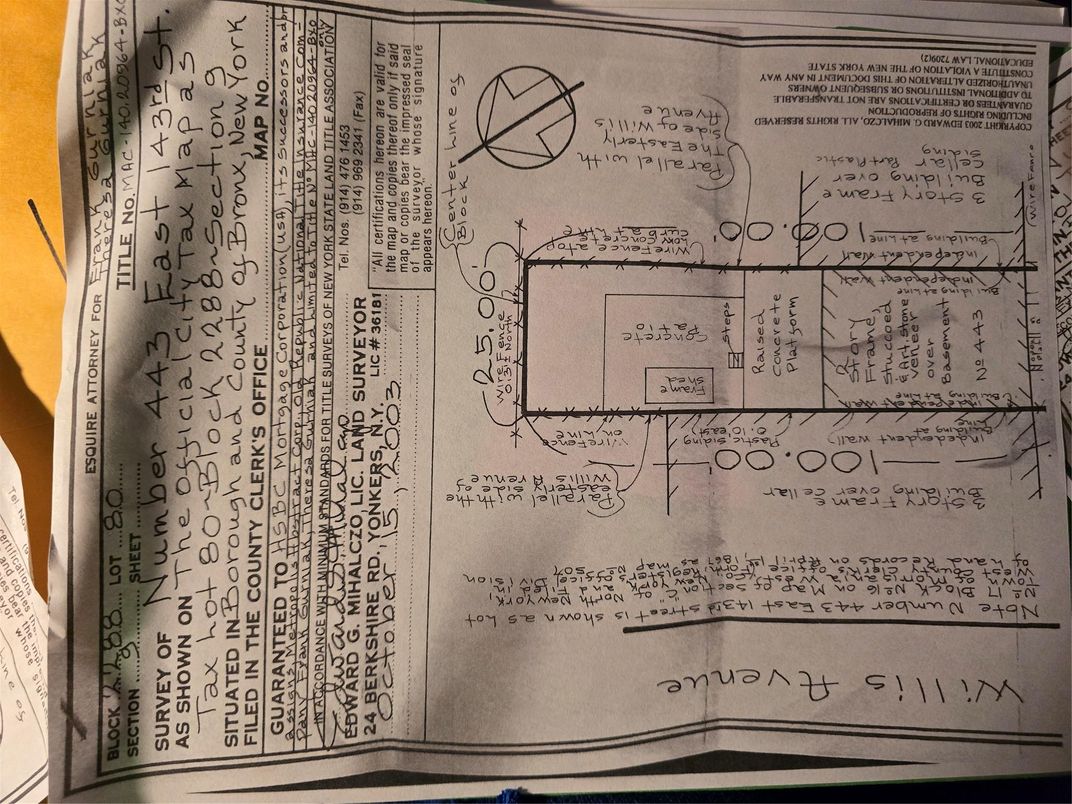 BLOCK 2288 LOT 80
SECTION 9 SHEET
ESQUIRE ATTORNEY FOR Frank Gurniak
Theresa Gurniak
TITLE NO. MAC-140.20964-BXO
SURVEY OF Number 443 East 143rd St.
AS SHOWN ON The Official City Tax Map as
Tax Lot 80-Block 2288-Section 9
SITUATED IN Borough and County of Bronx, New York
FILED IN THE COUNTY CLERK'S OFFICE MAP NO.
GUARANTEED TO HSBC Mortgage Corporation (USA), its successors and/or
assigns, Metropolis Abstract Corp., Old Republic National Title Insurance Com-
pany, Frank Gurniak, Theresa Gurniak and limited to Title Nº MAC-140.20964-BXO only
IN ACCORDANCE WITH MINIMUM STANDARDS FOR TITLE SURVEYS OF NEW YORK STATE LAND TITLE ASSOCIATION
EDWARD G. MIHALCZO, LIC. LAND SURVEYOR
24 BERKSHIRE RD., YONKERS, N.Y. LIC #36181
Tel. Nos. (914) 476 1453
(914) 969 2341 (Fax)
October 15, 2003
"All certifications hereon are valid for
the map and copies thereof only if said
map or copies bear the impressed seal
of the surveyor whose signature
appears hereon."
Center line of
Block
COPYRIGHT 2003 EDWARD G. MIHALCZO, ALL RIGHTS RESERVED
INCLUDING RIGHTS OF REPRODUCTION
GUARANTEES OR CERTIFICATIONS ARE NOT TRANSFERABLE
TO ADDITIONAL INSTITUTIONS OR SUBSEQUENT OWNERS
UNAUTHORIZED ALTERATION OF THIS DOCUMENT IN ANY WAY
CONSTITUTE A VIOLATION OF THE NEW YORK STATE
EDUCATIONAL LAW 7209(2)
Parallel with
The Easterly
side of Willis
Avenue
25.00'
Wire Fence
0.3'± North
Wire Fence atop
Low Concrete
curb at Line
100.00'
3 Story Frame
Building over
Cellar Part Plastic
Siding
Building at Line
Independent Wall
Wire Fence
Concrete
Patio
Frame
shed
steps
Raised
Concrete
Platform
Independent Wall
Building at Line
Story
Frame,
Stuccoed
& Art. stone
veneer
over
Basement
Nº 443
Independent Wall
Building at Line
Wire Fence
on Line
Plastic siding
0.10' east
Independent wall
Building at
Line
100.00'
Parallel with the
easterly side of
Willis Avenue
3 Story Frame
Building over Cellar
Note Number 443 East 143rd street is shown as Lot
Nº 17 Block Nº 16 on Map of section C. of North New York,
Willis Avenue